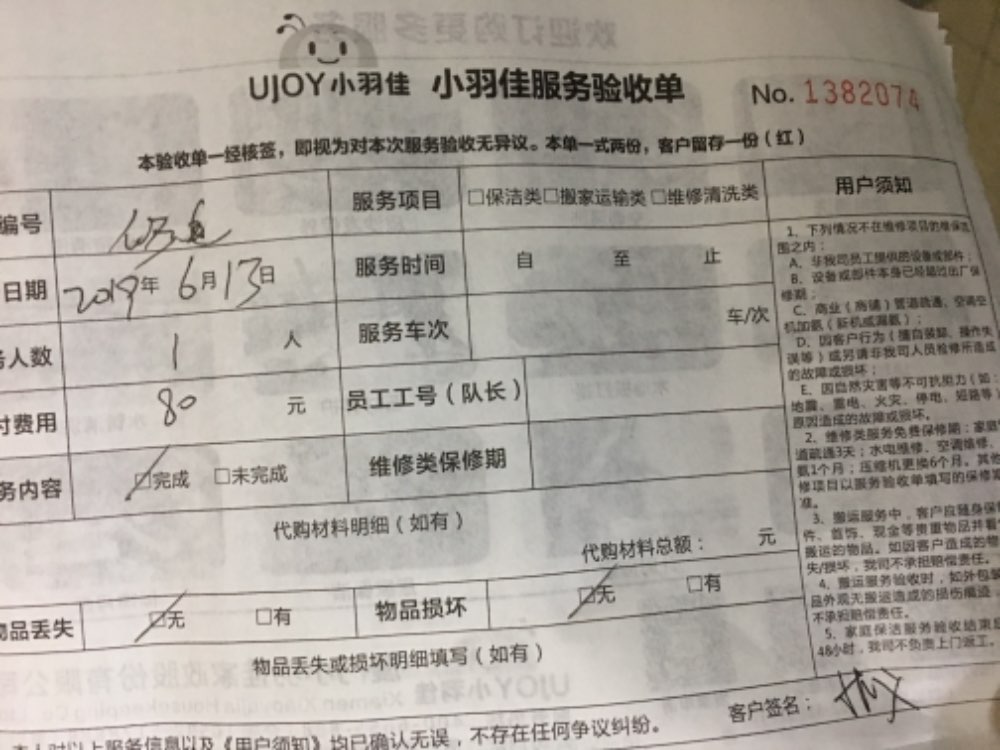 UJOY小羽佳 小羽佳服务验收单 No. 1382074
本验收单一经核签，即视为对本次服务验收无异议。本单一式两份，客户留存一份（红）
编号 服务项目 □保洁类□搬家运输类 □维修清洗类 用户须知
日期 2019年 6月13日 服务时间 自 至 止
务人数 1 人 服务车次 车/次
付费用 80 元 员工工号（队长）
务内容 □完成 □未完成 维修类保修期
代购材料明细（如有）
代购材料总额： 元
物品丢失 □无 □有 物品损坏 □无 □有
物品丢失或损坏明细填写（如有）
客户签名：
本人对以上服务信息以及《用户须知》均已确认无误，不存在任何争议纠纷。
1、下列情况不在维修项目的维保范
围之内：
A、非我司员工提供的设备或部件；
B、设备或部件本身已经超过出厂保
修期；
C、商业（商铺）管道疏通、空调空
机加氨（新机或漏氨）；
D、因客户行为（擅自装卸、操作失
误等）或另请非我司人员检修所造成
的故障或损坏；
E、因自然灾害等不可抗拒力（如：
地震、雷电、火灾、停电、短路等）
原因造成的故障或损坏。
2、维修类服务免费保修期：家庭
道疏通3天；水电维修、空调维修、
氨1个月；压缩机更换6个月。其他
修项目以服务验收单填写的保修
准。
3、搬运服务中，客户应随身保
件、首饰、现金等贵重物品并看
搬运的物品。如因客户造成的物
失/损坏，我司不承担赔偿责任。
4、搬运服务验收时，如外包装
品外观无搬运造成的损伤痕迹
不承担赔偿责任。
5、家庭保洁服务验收结束后
48小时，我司不负责上门返工。